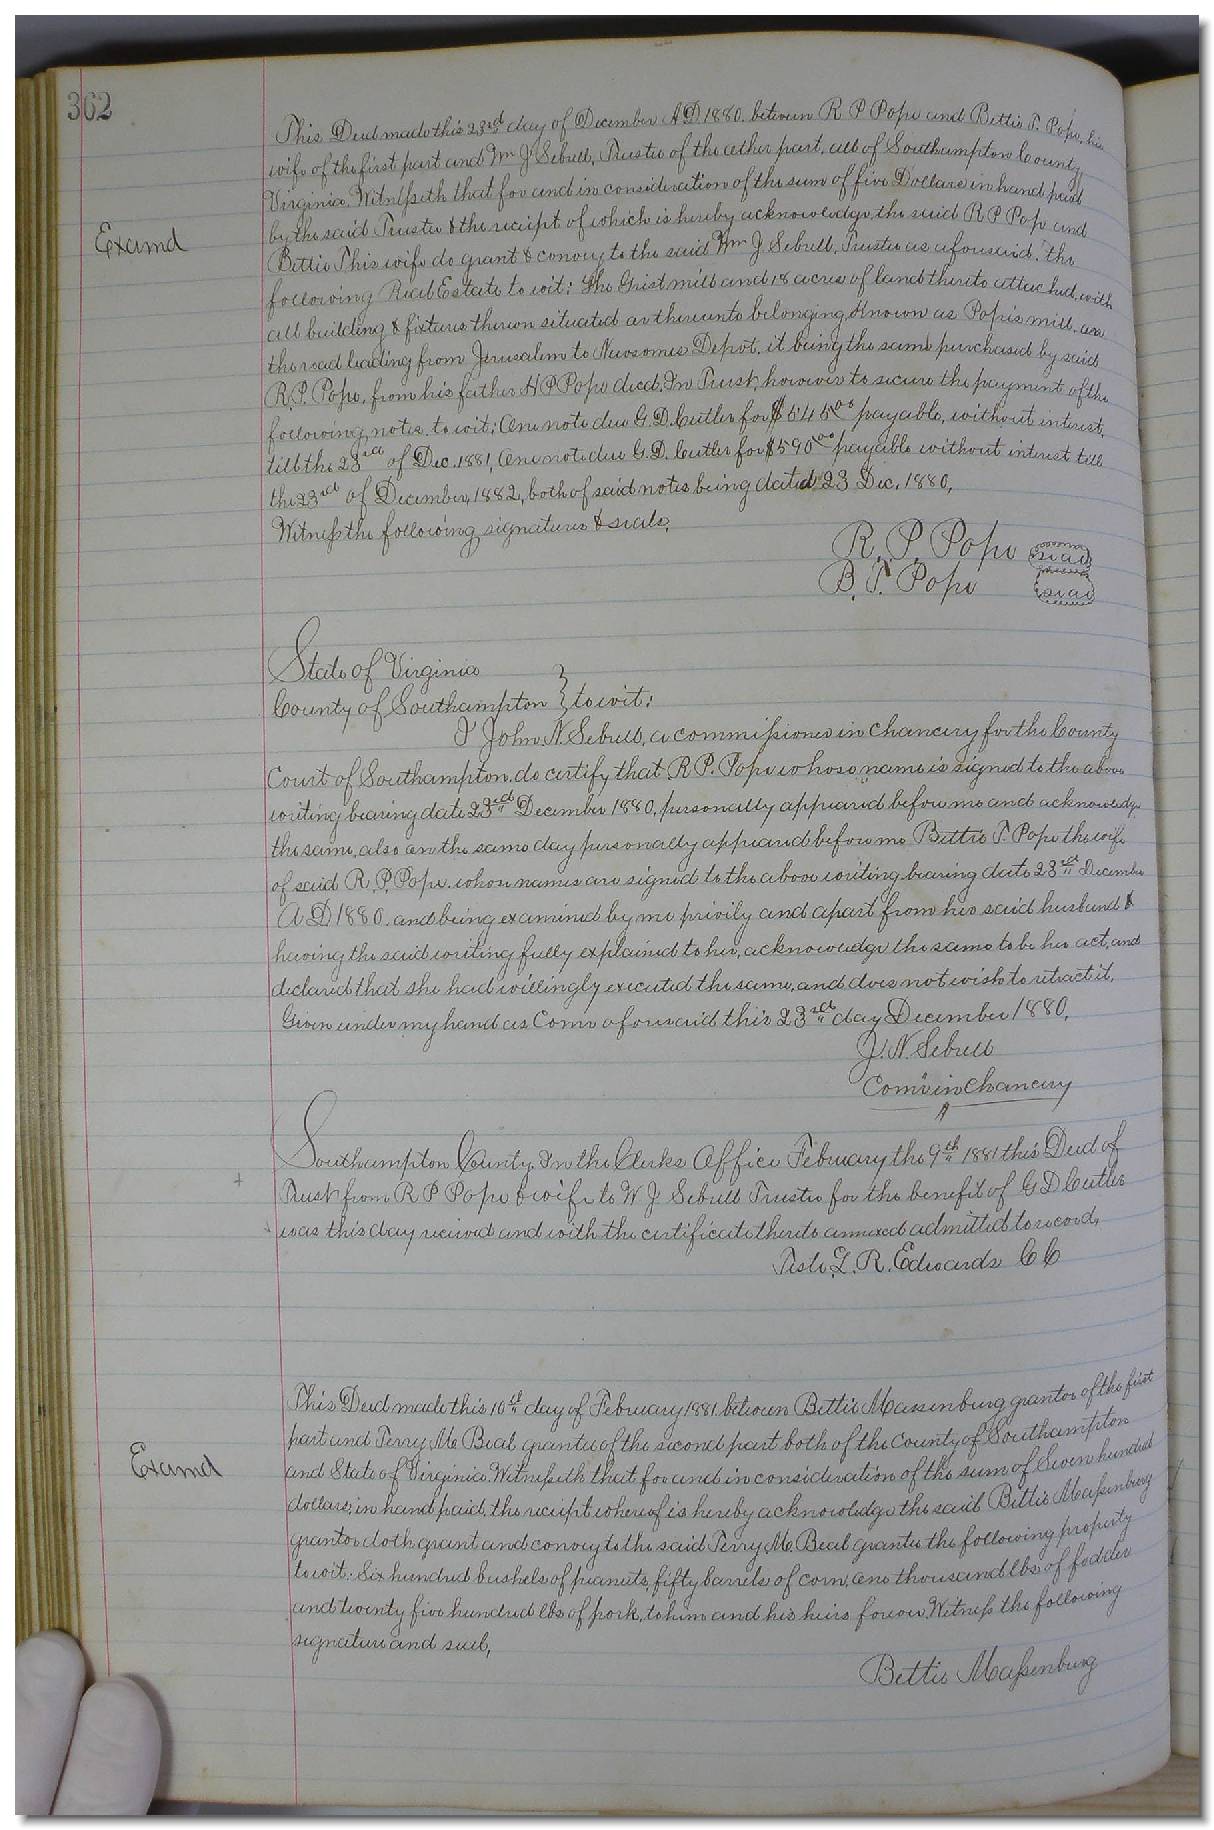 362
This Deed made this 23rd day of December A.D 1880. between R P Pope and Bettie T. Pope, his
wife of the first part and Wm J. Sebrell, Trustee of the other part, all of Southampton County
Virginia. Witnesseth that for and in consideration of the sum of five Dollars in hand paid
by the said Trustee & the receipt of which is hereby acknowledge, the said R P Pope and
Examd
Bettie T his wife do grant & convey to the said Wm J Sebrell, Trustee as aforesaid, the
following Real Estate to wit: The Grist mill and 18 acres of land thereto attached, with
all building & fixtures thereon situated or thereunto belonging, Known as Pope's mill, on
the road leading from Jerusalem to Newsoms Depot, it being the same purchased by said
R.P. Pope, from his father H P Pope decd. In Trust, however to secure the payment of the
following notes, to wit: One note due G.D. Cutler for $545 00 payable, without interest,
till the 23rd of Dec. 1881, One note due G.D. Cutler for $590 00 payable without interest till
the 23rd of December, 1882, both of said notes being dated 23 Dec. 1880,
Witness the following signatures & seals,
R. P. Pope seal
B. T. Pope seal
State of Virginia
County of Southampton } to wit:
I John N. Sebrell, a commissioner in chancery for the County
Court of Southampton, do certify that R P. Pope whose name is signed to the above
writing bearing date 23rd December 1880, personally appeared before me and acknowledge
the same, also on the same day personally appeared before me Bettie T. Pope the wife
of said R. P. Pope. whose names are signed to the above writing bearing date 23rd December
A D 1880. and being examined by me privily and apart from her said husband &
having the said writing fully explained to her, acknowledge the same to be her act, and
declared that she had willingly executed the same, and does not wish to retract it.
Given under my hand as Comr aforesaid this 23rd day December 1880.
J. N. Sebrell
Comr in Chancery
Southampton County, In the Clerks Office February the 9th 1881 this Deed of
Trust from R P Pope & wife to W J Sebrell Trustee for the benefit of G D Cutler
was this day received and with the certificate thereto annexed admitted to record,
Teste, L. R. Edwards C C
This Deed made this 10th day of February 1881, between Bettie Massenburg grantor of the first
part and Terry M. Beal grantee of the second part both of the County of Southampton
Examd
and State of Virginia. Witnesseth that for and in consideration of the sum of Seven hundred
dollars, in hand paid, the receipt whereof is hereby acknowledge the said Bettie Massenburg
grantor doth grant and convey to the said Terry M. Beal grantee the following property
to wit: Six hundred bushels of peanuts, fifty barrels of corn, one thousand lbs of fodder
and twenty five hundred lbs of pork, to him and his heirs forever. Witness the following
signature and seal,
Bettie Massenburg